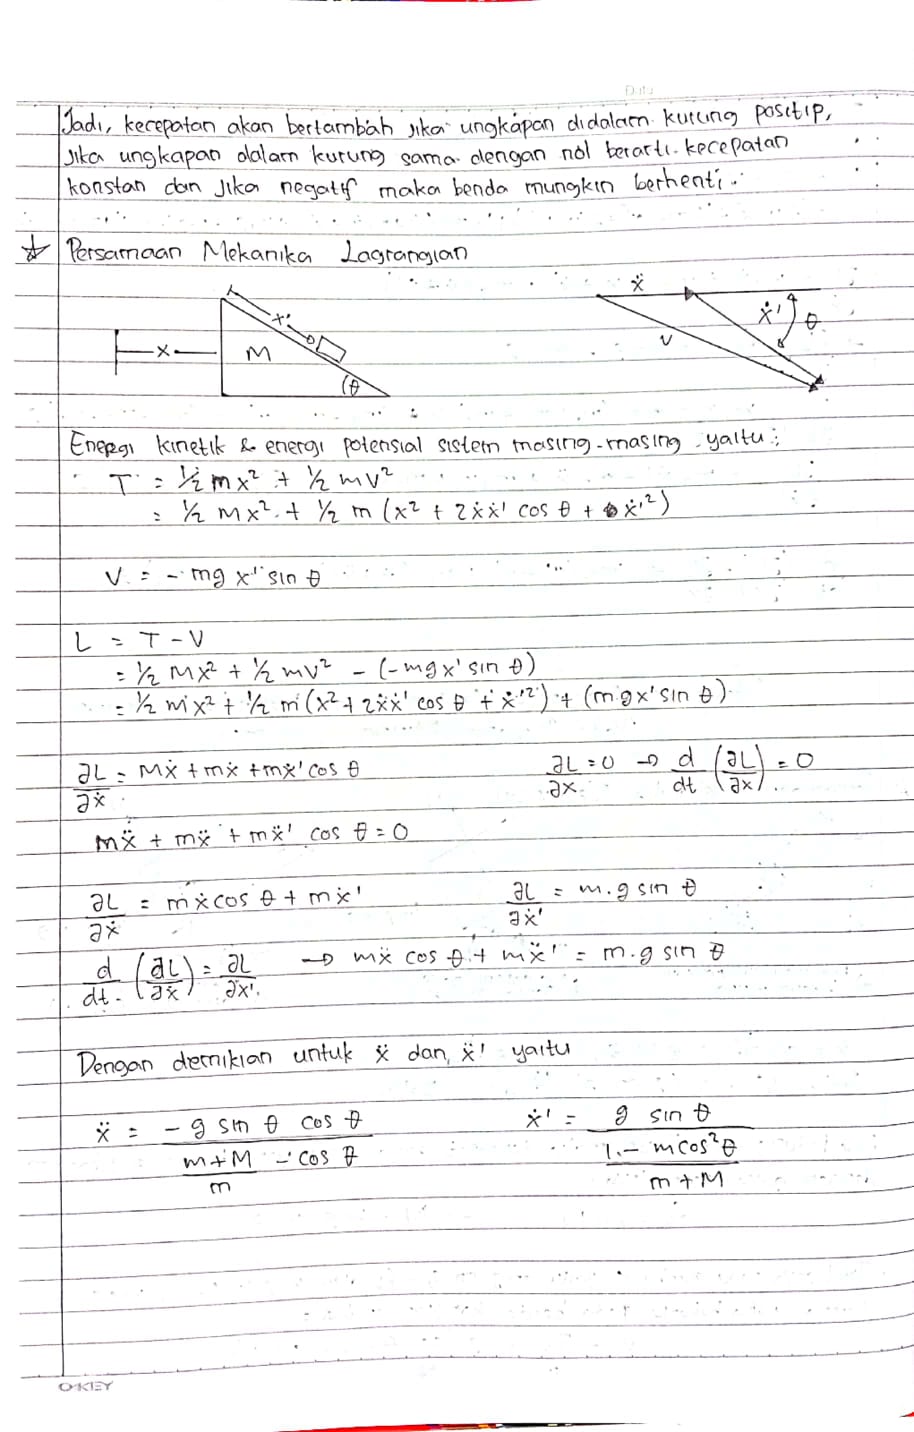 Date
Jadi, kecepatan akan bertambah jika ungkapan didalam kurung positip,
jika ungkapan dalam kurung sama dengan nol berarti kecepatan
konstan dan jika negatif maka benda mungkin berhenti.
☆ Persamaan Mekanika Lagrangian
x M x' θ
ẍ v ẋ' θ
Energi kinetik & energi potensial sistem masing-masing yaitu:
T = ½ mx² + ½ mv²
= ½ Mx² + ½ m (x² + 2ẋẋ' cos θ + ẋ'²)
V = - mg x' sin θ
L = T - V
= ½ Mx² + ½ mv² - (-mgx' sin θ)
= ½ mx² + ½ m (x² + 2ẋẋ' cos θ + ẋ'²) + (m.gx' sin θ)
∂L/∂ẋ = Mẋ + mẋ + mẋ' cos θ ∂L/∂x = 0 → d/dt (∂L/∂ẋ) = 0
mẍ + mẍ + mẍ' cos θ = 0
∂L/∂ẋ = mẋ cos θ + mẋ' ∂L/∂ẋ' = m.g sin θ
d/dt (∂L/∂ẋ) = ∂L/∂x' → mẍ cos θ + mẍ' = m.g sin θ
Dengan demikian untuk ẍ dan ẍ' yaitu
ẍ = - g sin θ cos θ ẍ' = g sin θ
m+M - cos θ 1 - m cos² θ
m m + M
OKEY